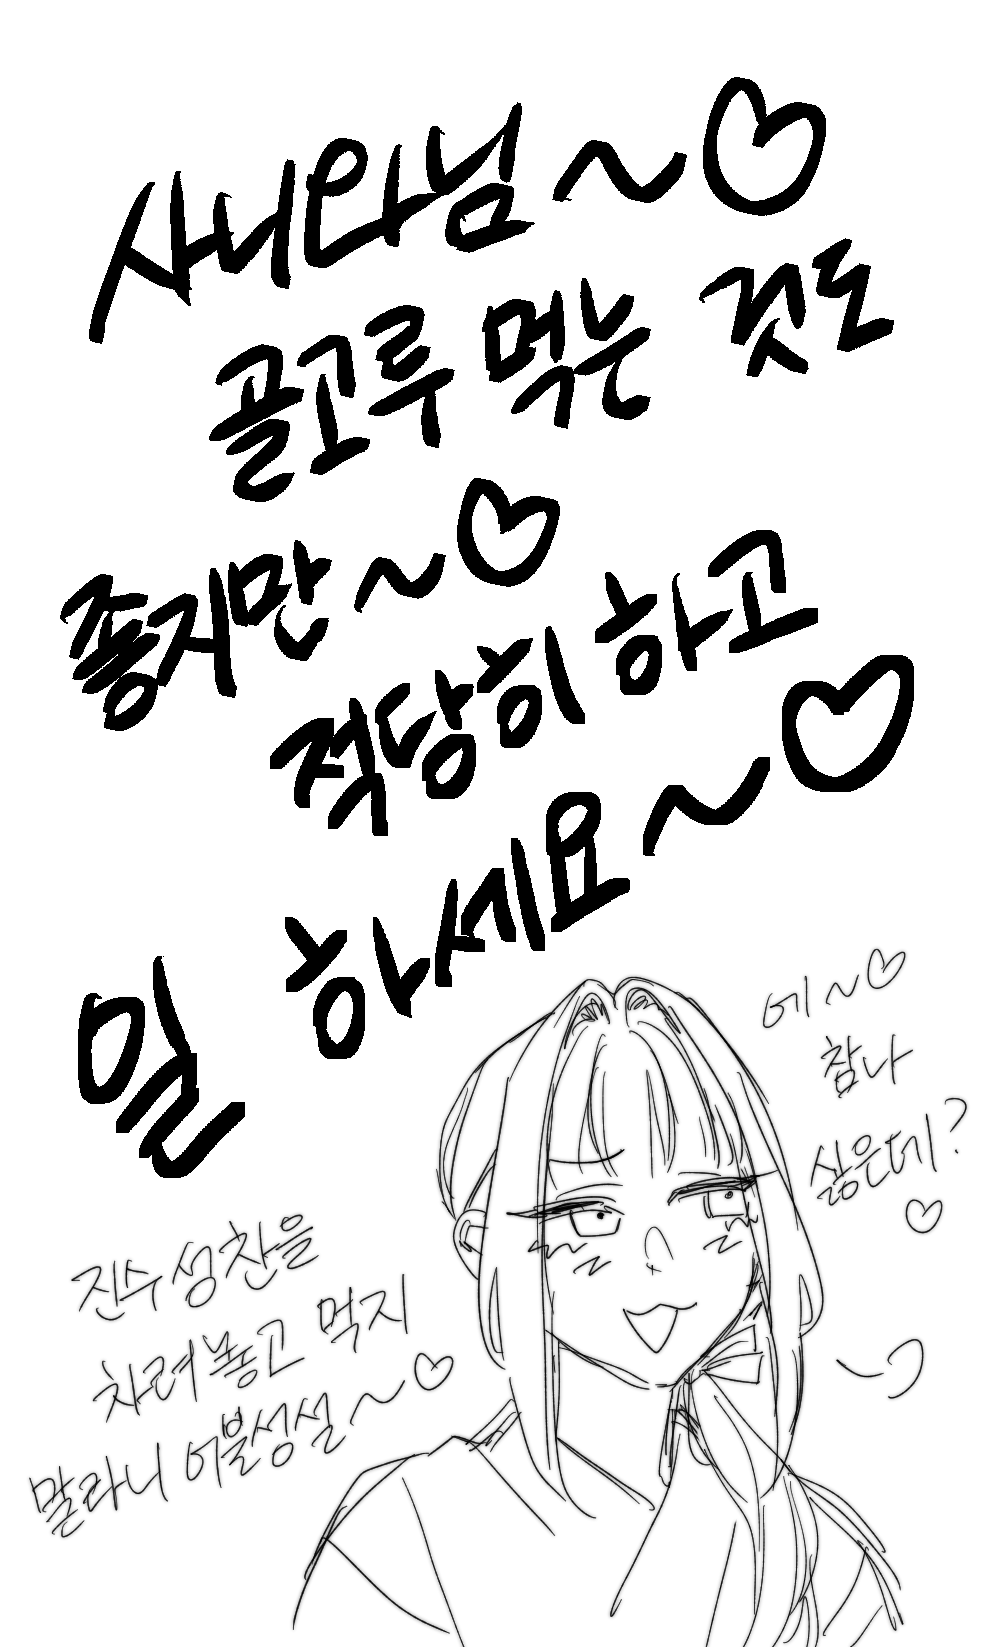 사니라님~♡
골고루 먹는 것도
좋지만~♡
적당히 하고
일 하세요~♡
에~♡
참나
싫은데?
♡
진수성찬을
차려놓고 먹지
말라니 어불성설~♡